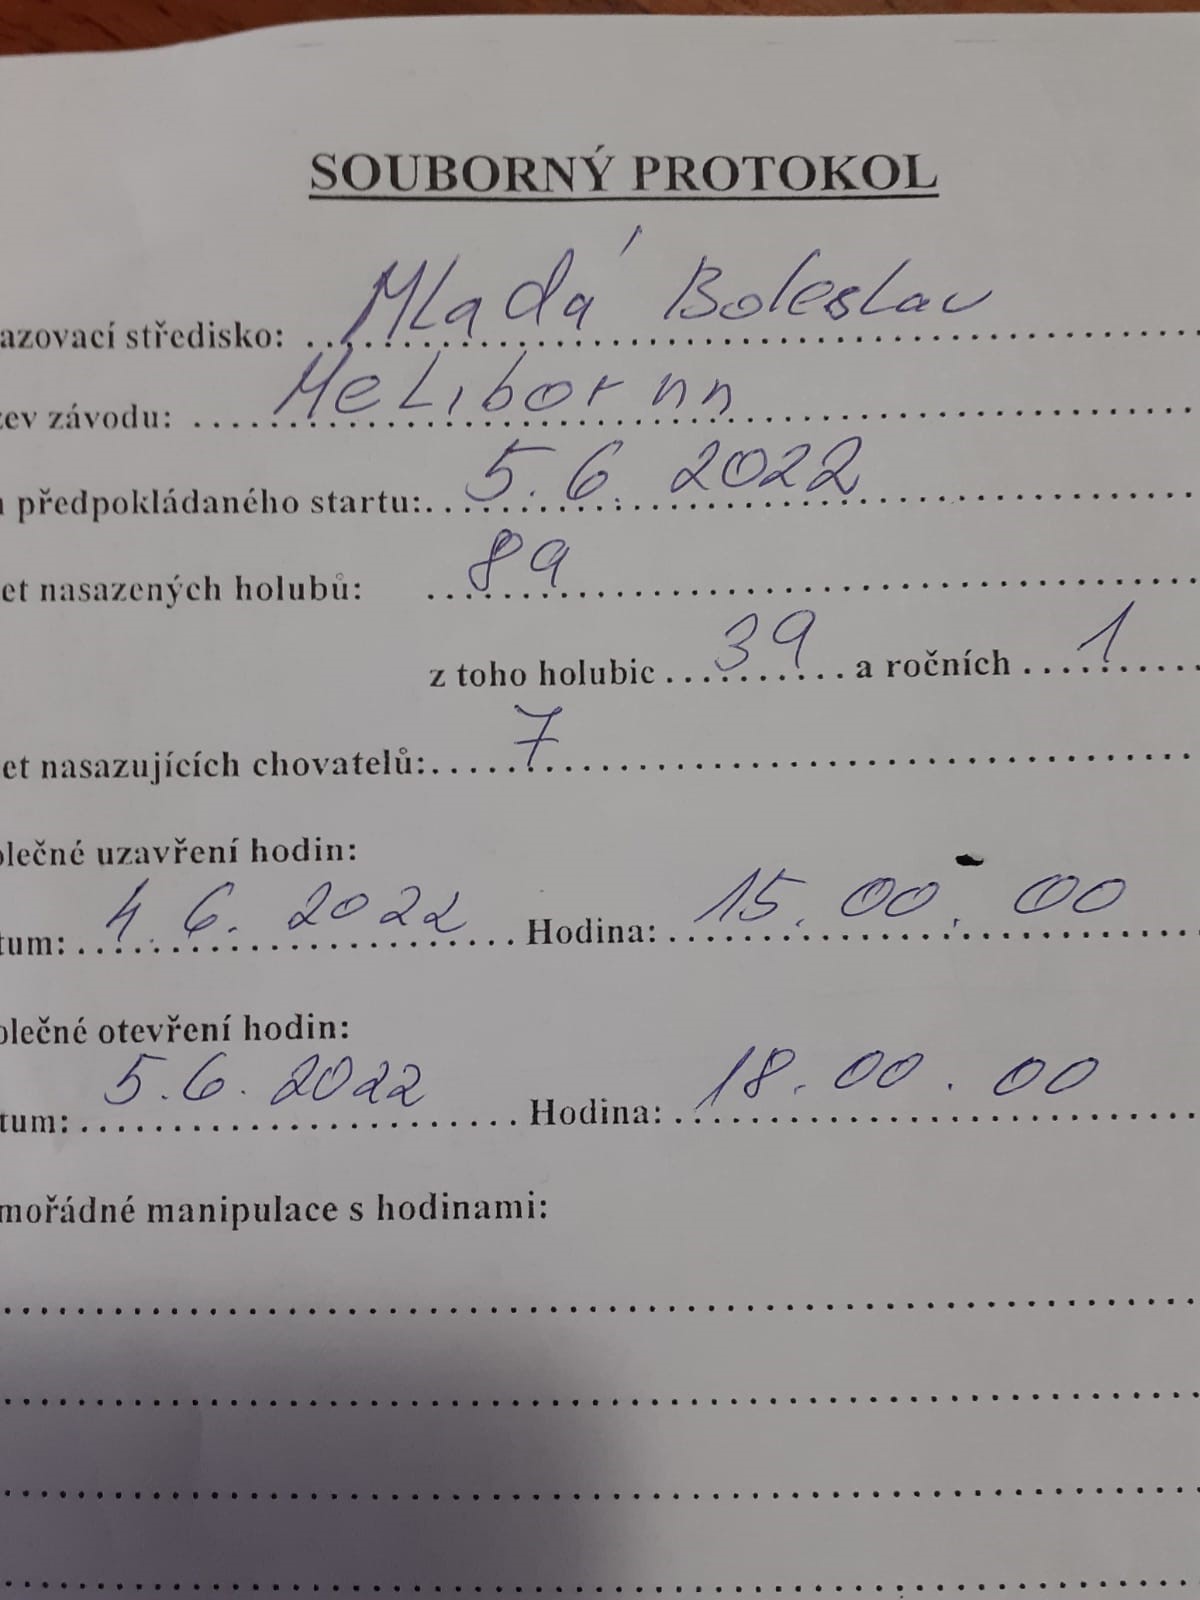 SOUBORNÝ PROTOKOL
azovací středisko: Mladá Boleslav
ev závodu: Melibornn
předpokládaného startu: 5.6.2022
et nasazených holubů: 89
z toho holubic 39 a ročních 1
et nasazujících chovatelů: 7
olečné uzavření hodin:
tum: 4.6.2022 Hodina: 15.00.00
olečné otevření hodin:
tum: 5.6.2022 Hodina: 18.00.00
mořádné manipulace s hodinami: